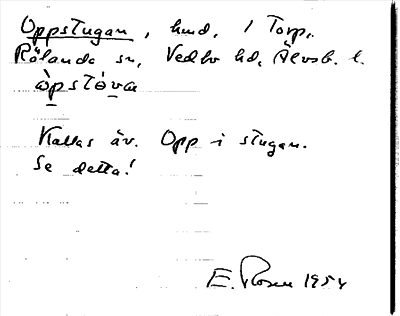 Oppstugan, hmd, i Torp,
Rölanda sn, Vedbo hd, Älvsb. l.
òpstóva
Kallas äv. Opp i stugan.
Se detta!
E. Rosen 1954